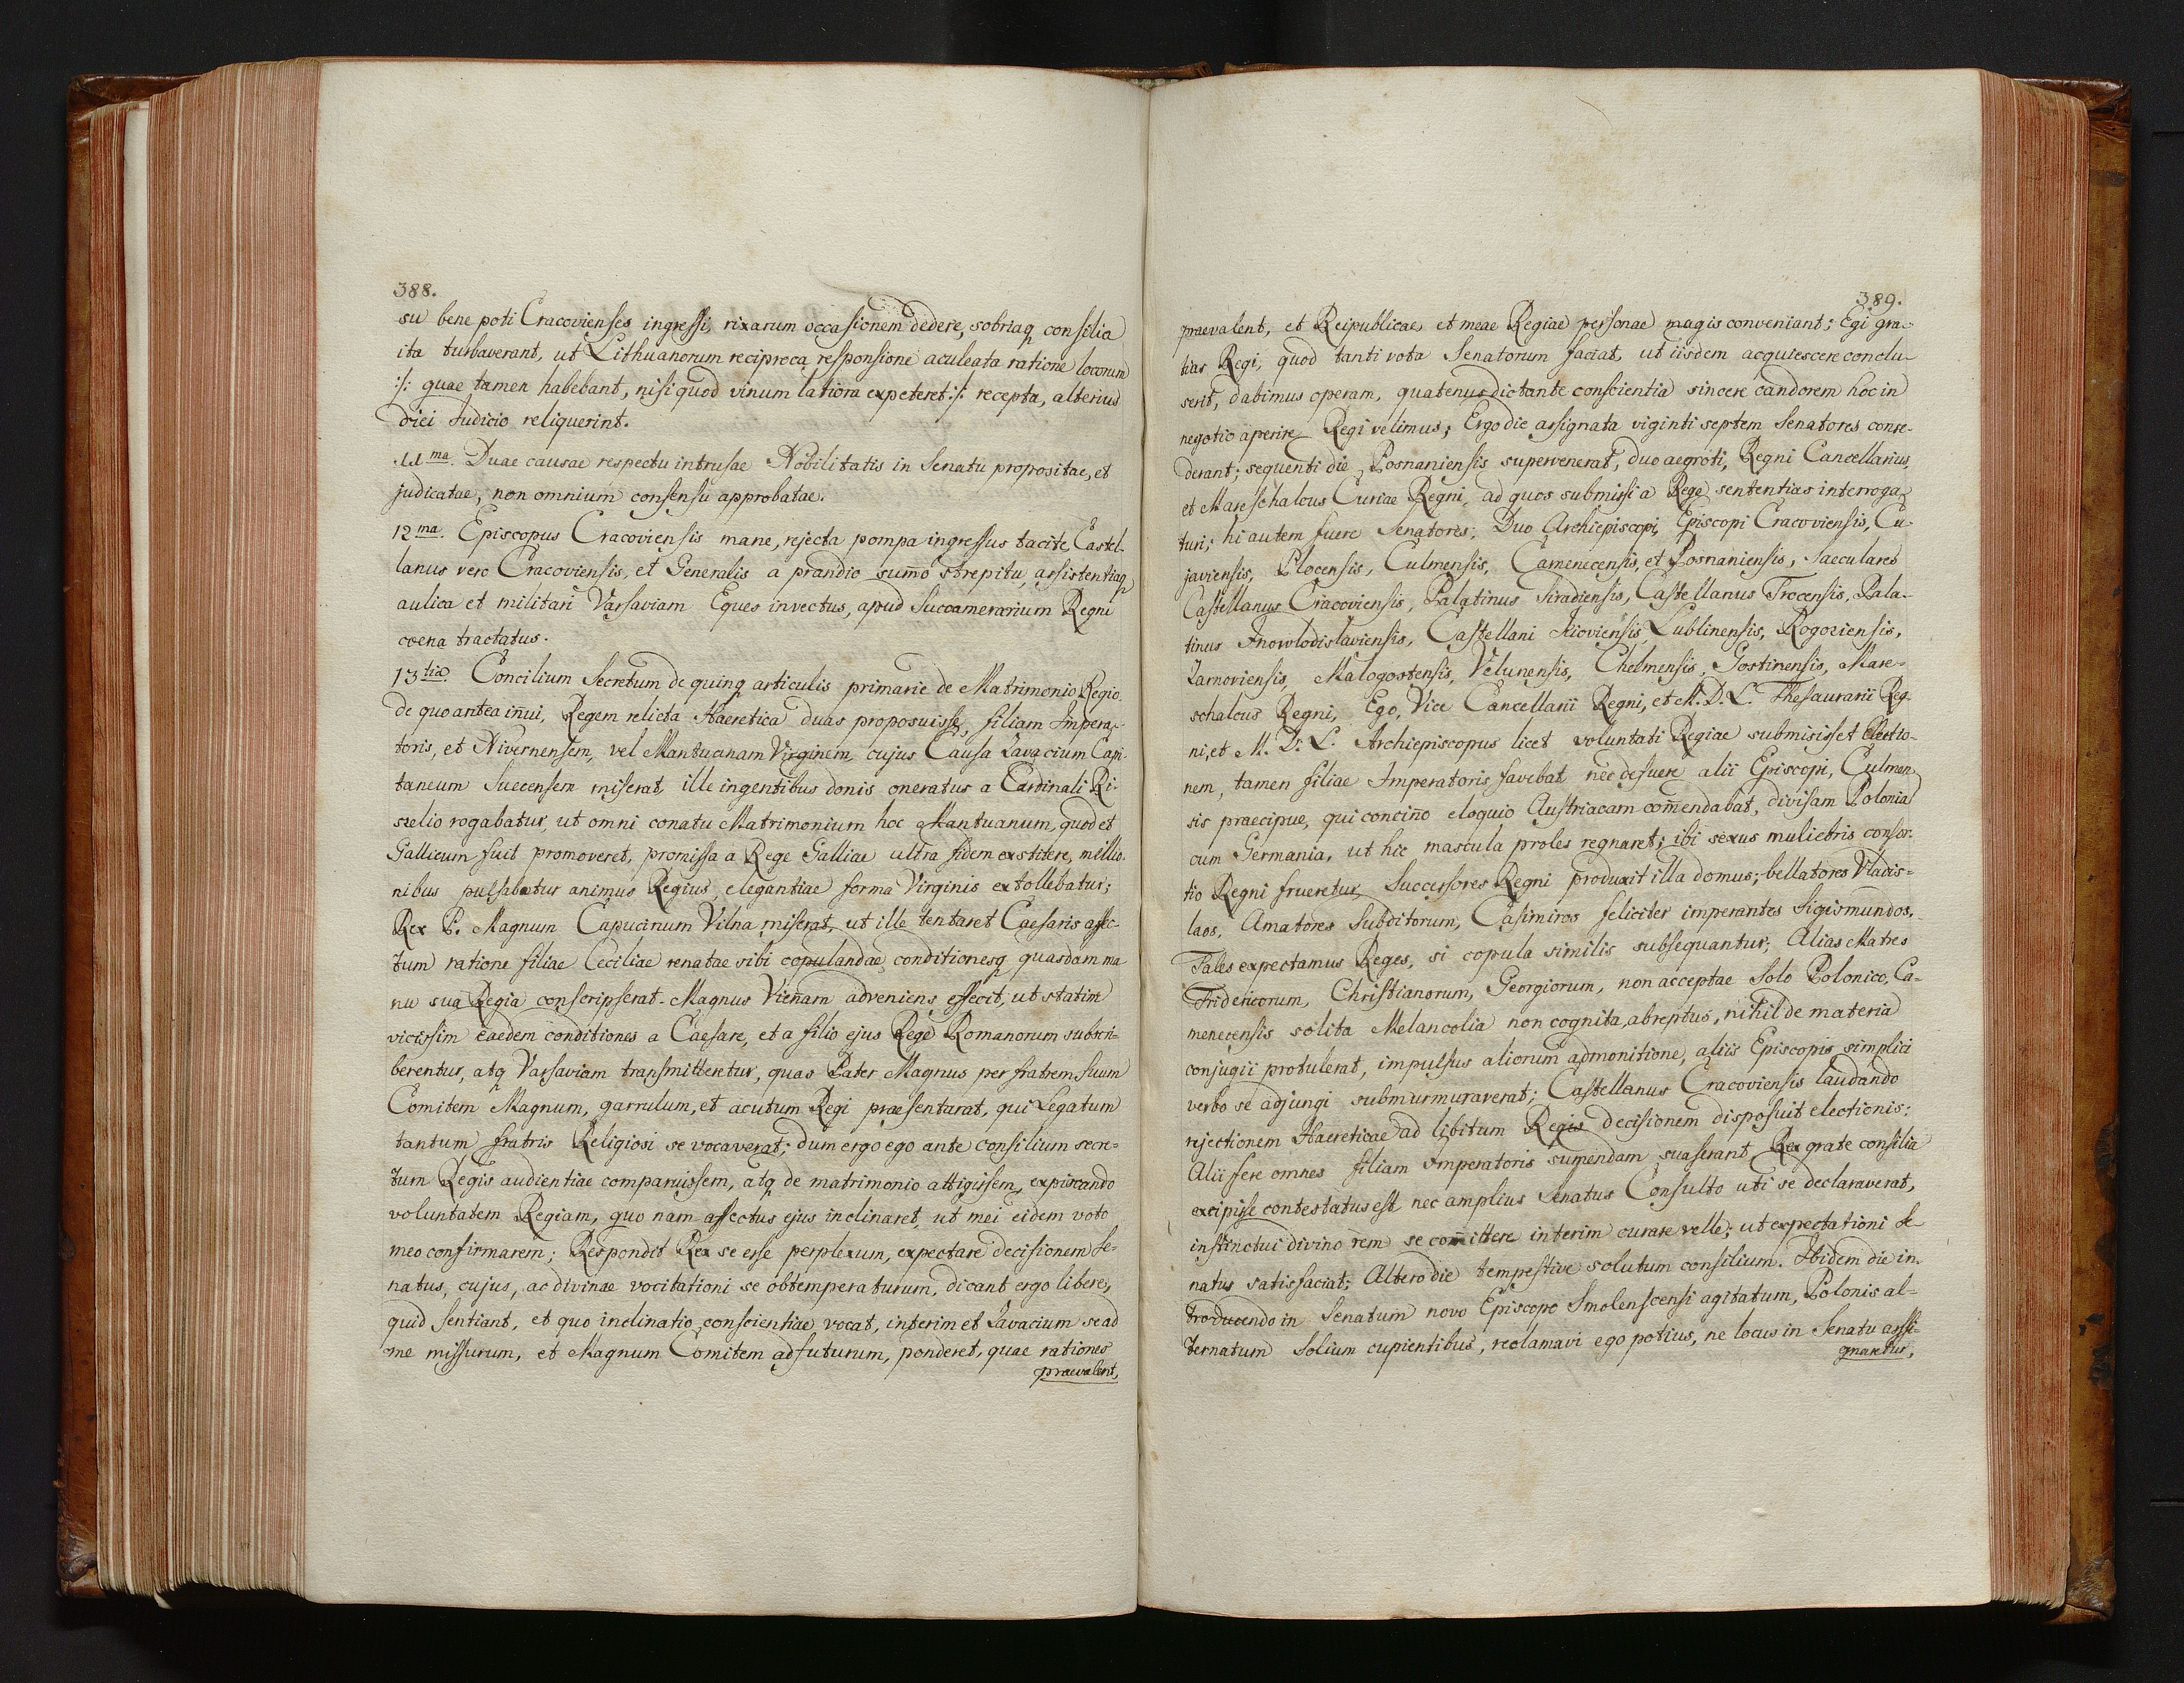 388.
su bene poti Cracovienses ingressi, rixarum occasionem dedere, sobriaq consilia
ita turbaverant, ut Lithuanorum reciproca responsione aculeata ratione locorum
:/: quae tamen habebant, nisi quod vinum latiora expeteret :/: recepta, alterius
diei Iudicio reliquerint.
11ma. Duae causae respectu intrusae Nobilitatis in Senatu propositae, et
judicatae, non omnium consensu approbatae.
12ma. Episcopus Cracoviensis mane, rejecta pompa ingressus tacite, Castel-
lanus vero Cracoviensis, et Generalis a prandio sum̄o strepitu, assistentiaq
aulica et militari Varsaviam Eques invectus, apud Succamerarium Regni
coena tractatus.
13tia. Concilium Secretum de quinq articulis primarie de Matrimonio Regio.
de quo antea in̄ui, Regem relicta Haeretica duas proposuisse, filiam Impera-
toris, et Nivernensem, vel Mantuanam Virginem, cujus Causa Zavacium Capi-
taneum Suecensem miserat, ille ingentibus donis oneratus a Cardinali Ri-
szelio rogabatur, ut omni conatu Matrimonium hoc Mantuanum, quod et
Gallicum fuit promoveret, promissa a Rege Galliae ultra fidem exstitere, millio-
nibus pulsabatur animus Regius, elegantiae forma Virginis extollebatur;
Rex P. Magnum Capucinum Vilna miserat, ut ille tentaret Caesaris affec-
tum ratione filiae Ceciliae renatae sibi copulandae, conditionesq quasdam ma
nu sua Regia conscripserat. Magnus Vien̄am adveniens effecit, ut statim
vicissim eaedem conditiones a Caesare, et a filio ejus Rege Romanorum subscri-
berentur, atq Varsaviam transmitteretur, quas Pater Magnus per fratrem suum
Comitem Magnum, garrulum, et acutum Regi praesentarat, qui Legatum
tantum fratris Religiosi se vocaverat; dum ergo ego ante consilium secre-
tum Regis audientiae comparuissem, atq de matrimonio attigissem, expiscando
voluntatem Regiam, quo nam affectus ejus inclinaret, ut mei eidem voto
meo confirmarem; Respondit Rex se esse perplexum, expectare decisionem Se-
natus, cujus, ac divinae vocitationi se obtemperaturum, dicant ergo libere,
quid sentiant, et quo inclinatio conscientiae vocat, interim et Zavacium se ad
me missurum, et Magnum Comitem adfuturum, ponderet, quae rationes
praevalent,
389.
praevalent, et Reipublicae et meae Regiae personae magis conveniant; Egi gra-
tias Regi, quod tanti vota Senatorum faciat, ut iisdem acquiescere conclu-
serit, dabimus operam, quatenus dictante conscientia sincere candorem hoc in
negotio aperire Regi velimus; Ergo die assignata viginti septem Senatores conse-
derant; sequenti die Posnaniensis supervenerat, duo aegroti, Regni Cancellarius,
et Mareschalcus Curiae Regni, ad quos submissi a Rege sententias interroga-
turi; hi autem fuere Senatores; Duo Archiepiscopi, Episcopi Cracoviensis, Cu-
javiensis, Plocensis, Culmensis, Camenecensis, et Posnaniensis; Saeculares
Castellanus Cracoviensis, Palatinus Siradiensis, Castellanus Trocensis, Pala-
tinus Inowlodislaviensis, Castellani Kioviensis, Lublinensis, Rogoziensis,
Zarnoviensis, Malogostensis, Velunensis, Chelmensis, Gostinensis, Mare-
schalcus Regni, Ego, Vice Cancellarii Regni, et M. D. L. Thesaurarii Reg-
ni, et M. D. L. Archiepiscopus licet voluntati Regiae submisisset Electio-
nem, tamen filiae Imperatoris favebat, nec defuere alii Episcopi, Culmen-
sis praecipue, qui concin̄o eloquio Austriacam com̄endabat, divisam Polonia
cum Germania, ut hic mascula proles regnaret; ibi sexus muliebris consor-
tio Regni frueretur, Successores Regni produxit illa domus; bellatores Vladis-
laos, Amatores Subditorum, Casimiros feliciter imperantes Sigismundos.
Tales expectamus Reges, si copula similis subsequantur; Alias Matres
Fridericorum, Christianorum, Georgiorum, non acceptae Solo Polonico, Ca-
menecensis solita Melancolia non cognita, abreptus, nihil de materia
conjugii protulerat, impulsus aliorum admonitione, aliis Episcopis simplici
verbo se adjungi submurmuraverat; Castellanus Cracoviensis laudando
rejectionem Haereticae ad libitum Regis decisionem disposuit electionis;
Alii fere omnes filiam Imperatoris sumendam suaserant, Rex grate consilia
excipisse contestatus est nec amplius Senatus Consulto uti se declaraverat,
instinctui divino rem se com̄ittere interim curare velle; ut expectationi Se-
natus satisfaciat; Altero die tempestive solutum consilium. Ibidem die in-
troducendo in Senatum novo Episcopo Smolenscensi agitatum, Polonis al-
ternatum Solium cupientibus, reclamavi ego potius, ne locus in Senatu assi-
gnaretur,